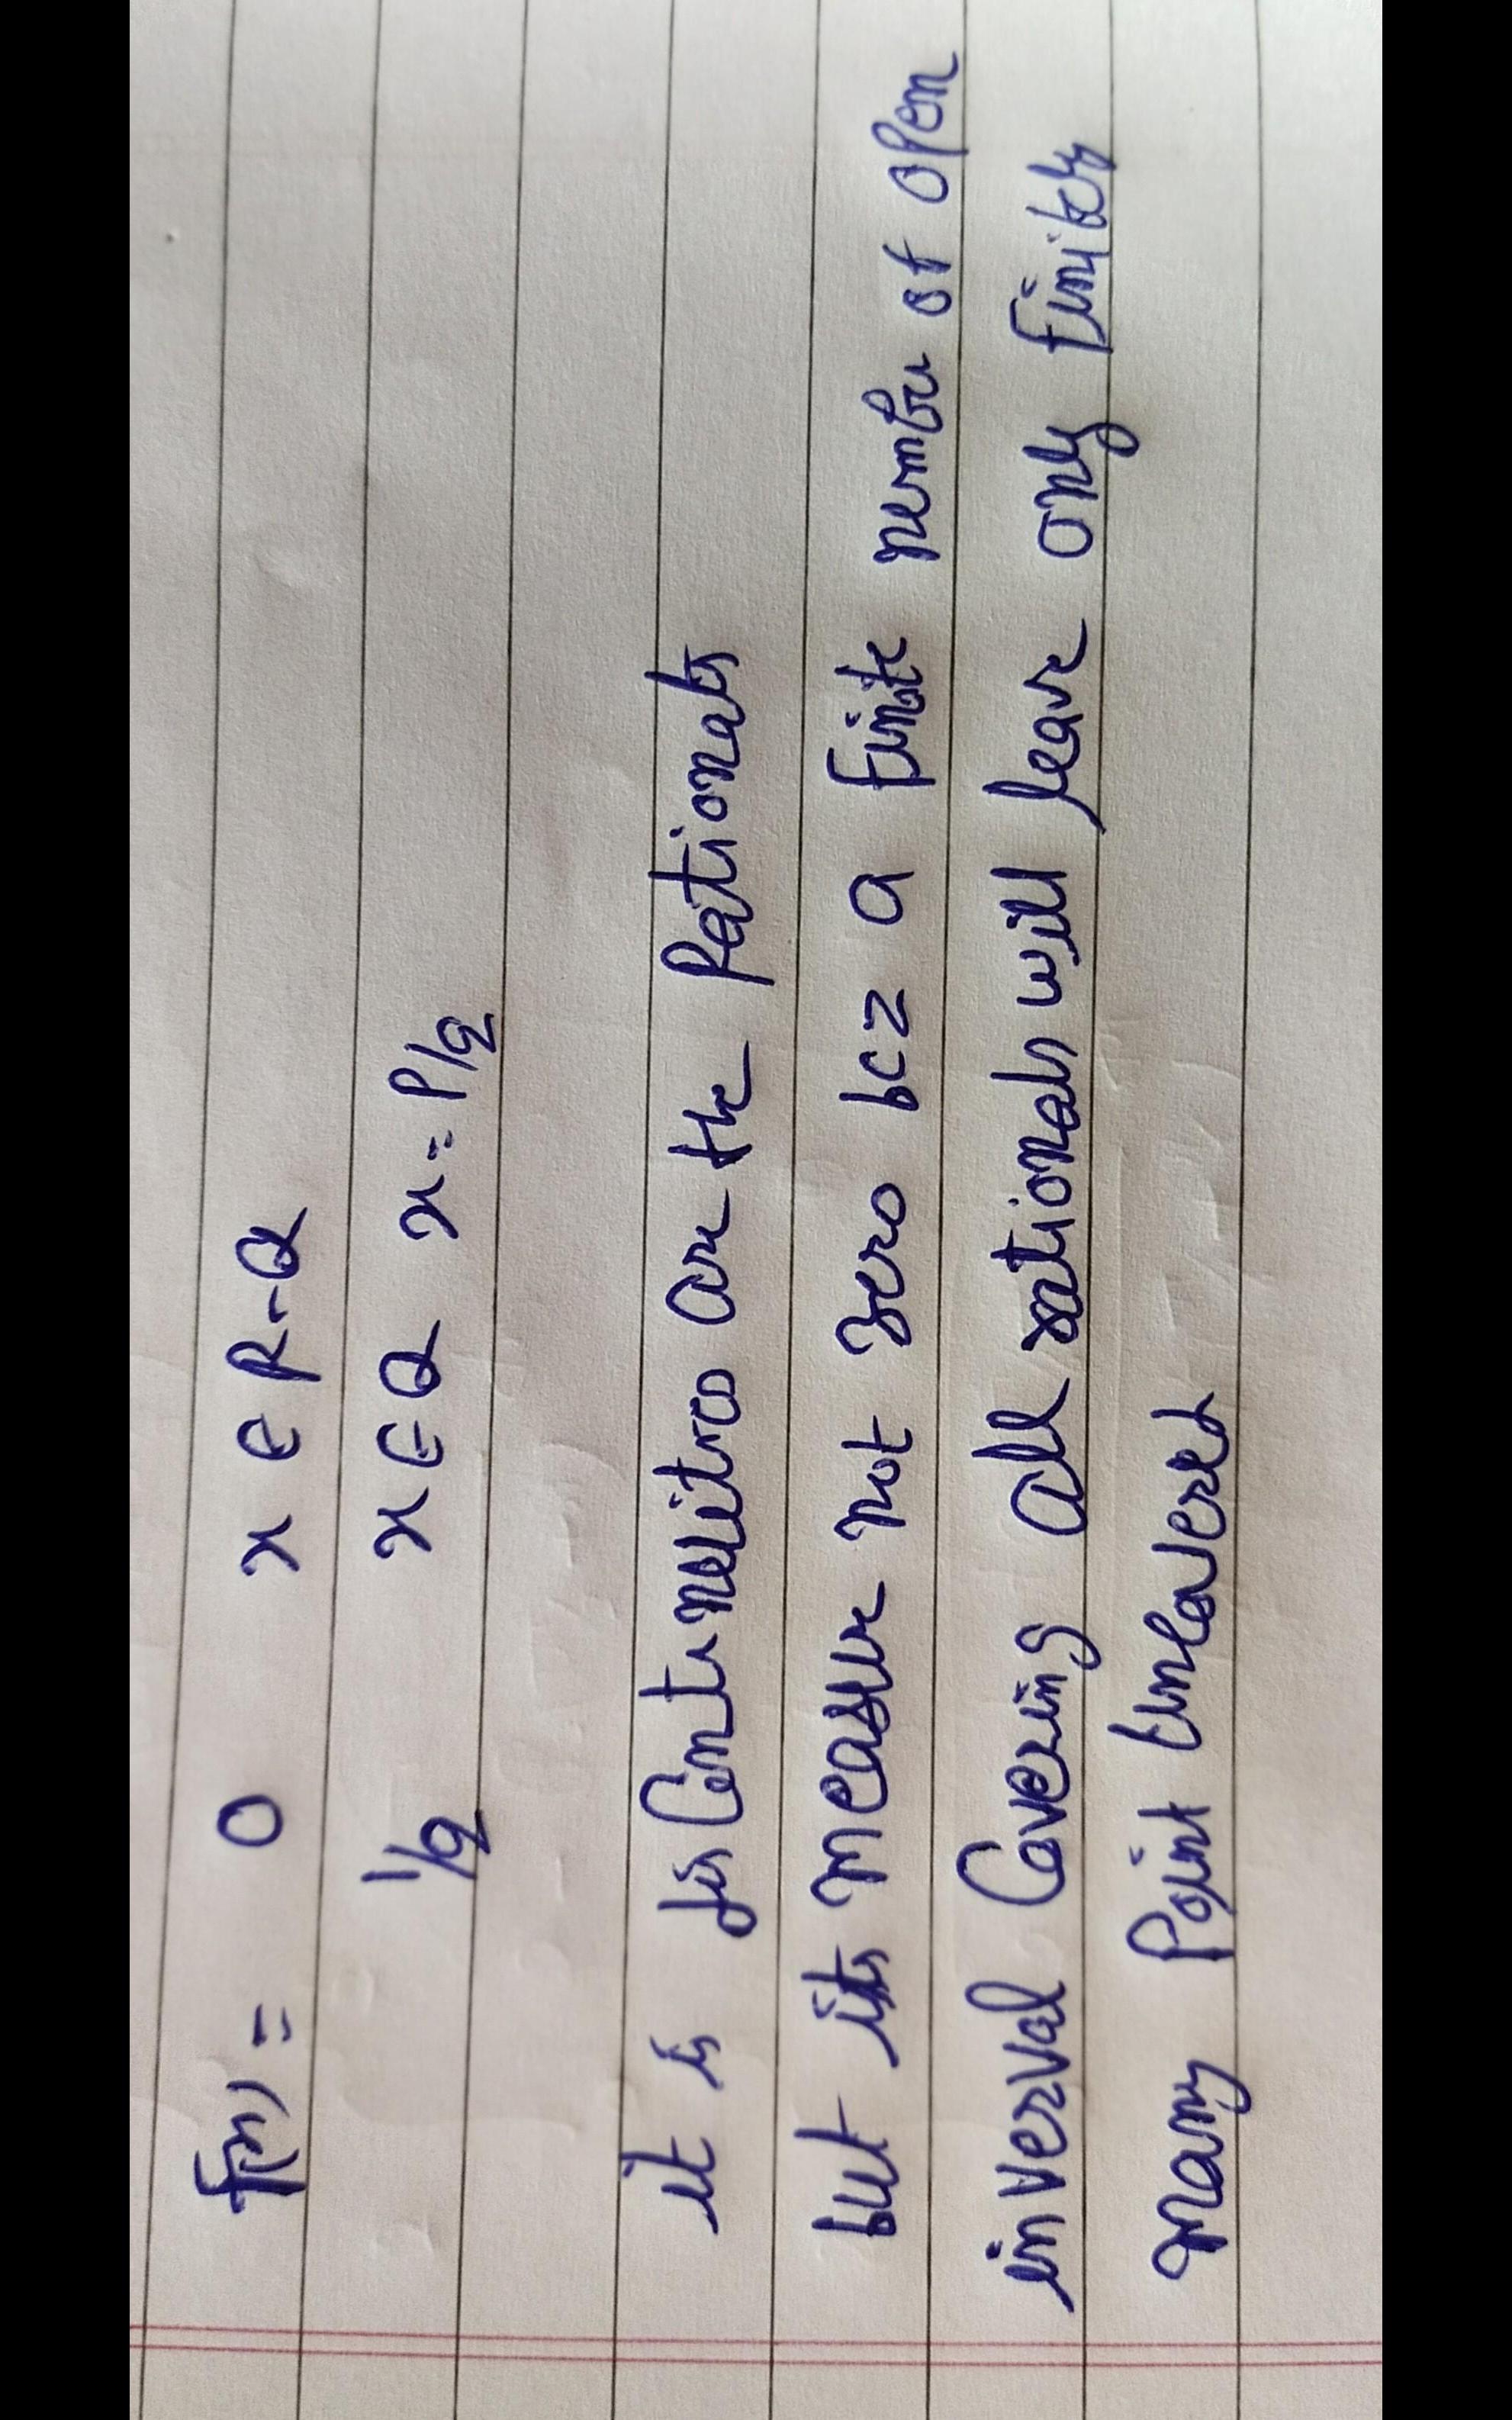 f(x) = 0 x ∈ R-Q
1/q x ∈ Q x = P/q
it is disContinuities are the Rationals
but its measure not zero bcz a finite number of open
inverval Covering all rationals will leave only finitely
many Point Uncovered